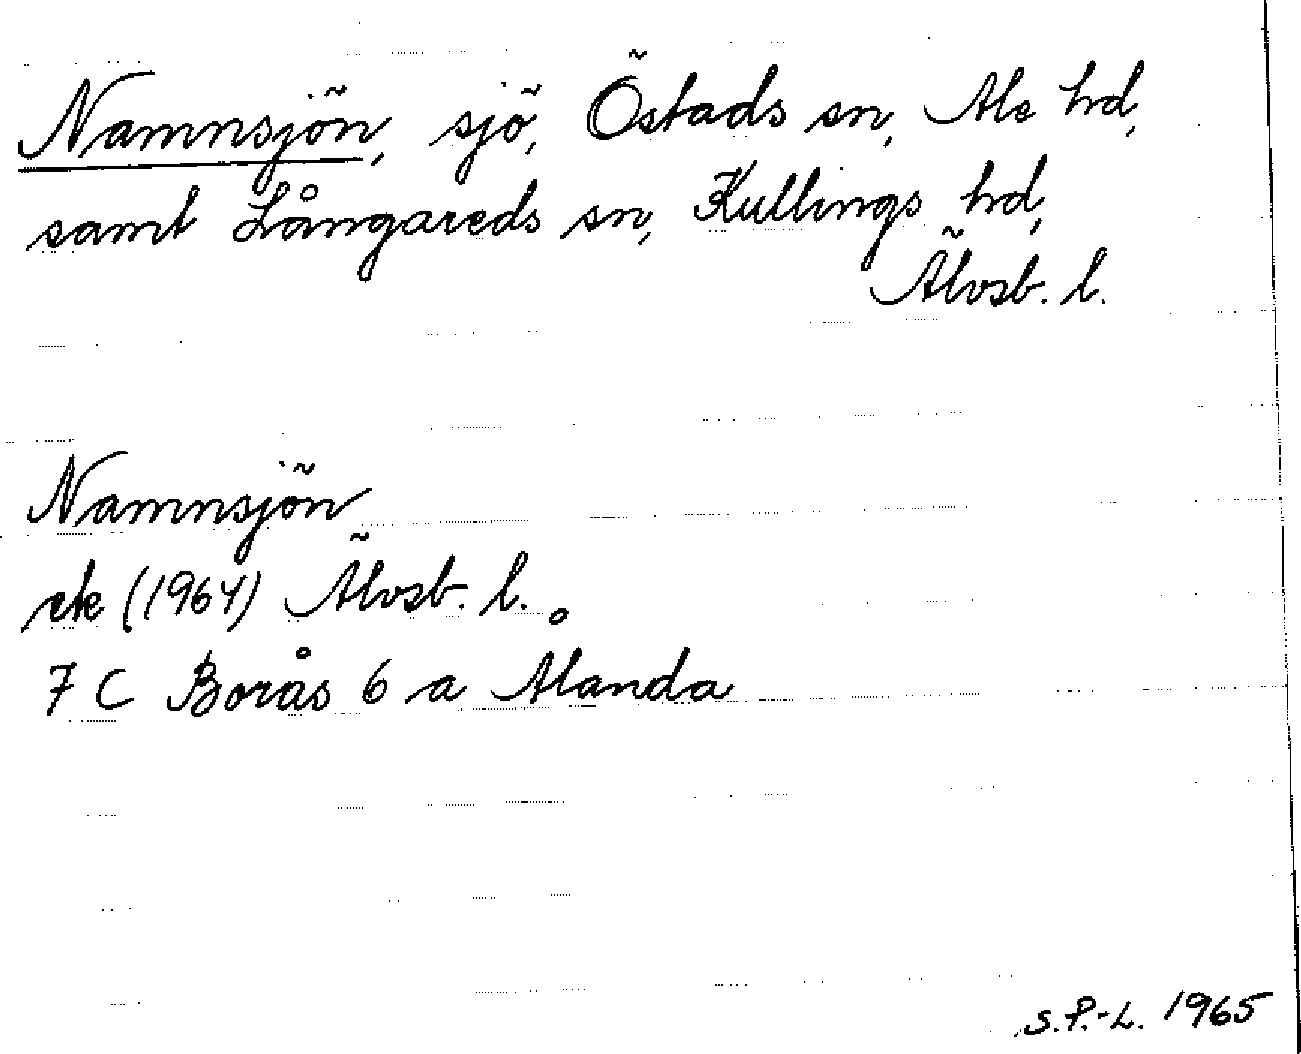 Namnsjön, sjö, Östads sn, Ale hd,
samt Långareds sn, Kullings hd,
Älvsb. l.
Namnsjön
ek (1964) Älvsb. l.
7 C Borås 6 a Ålanda
S.P.-L. 1965